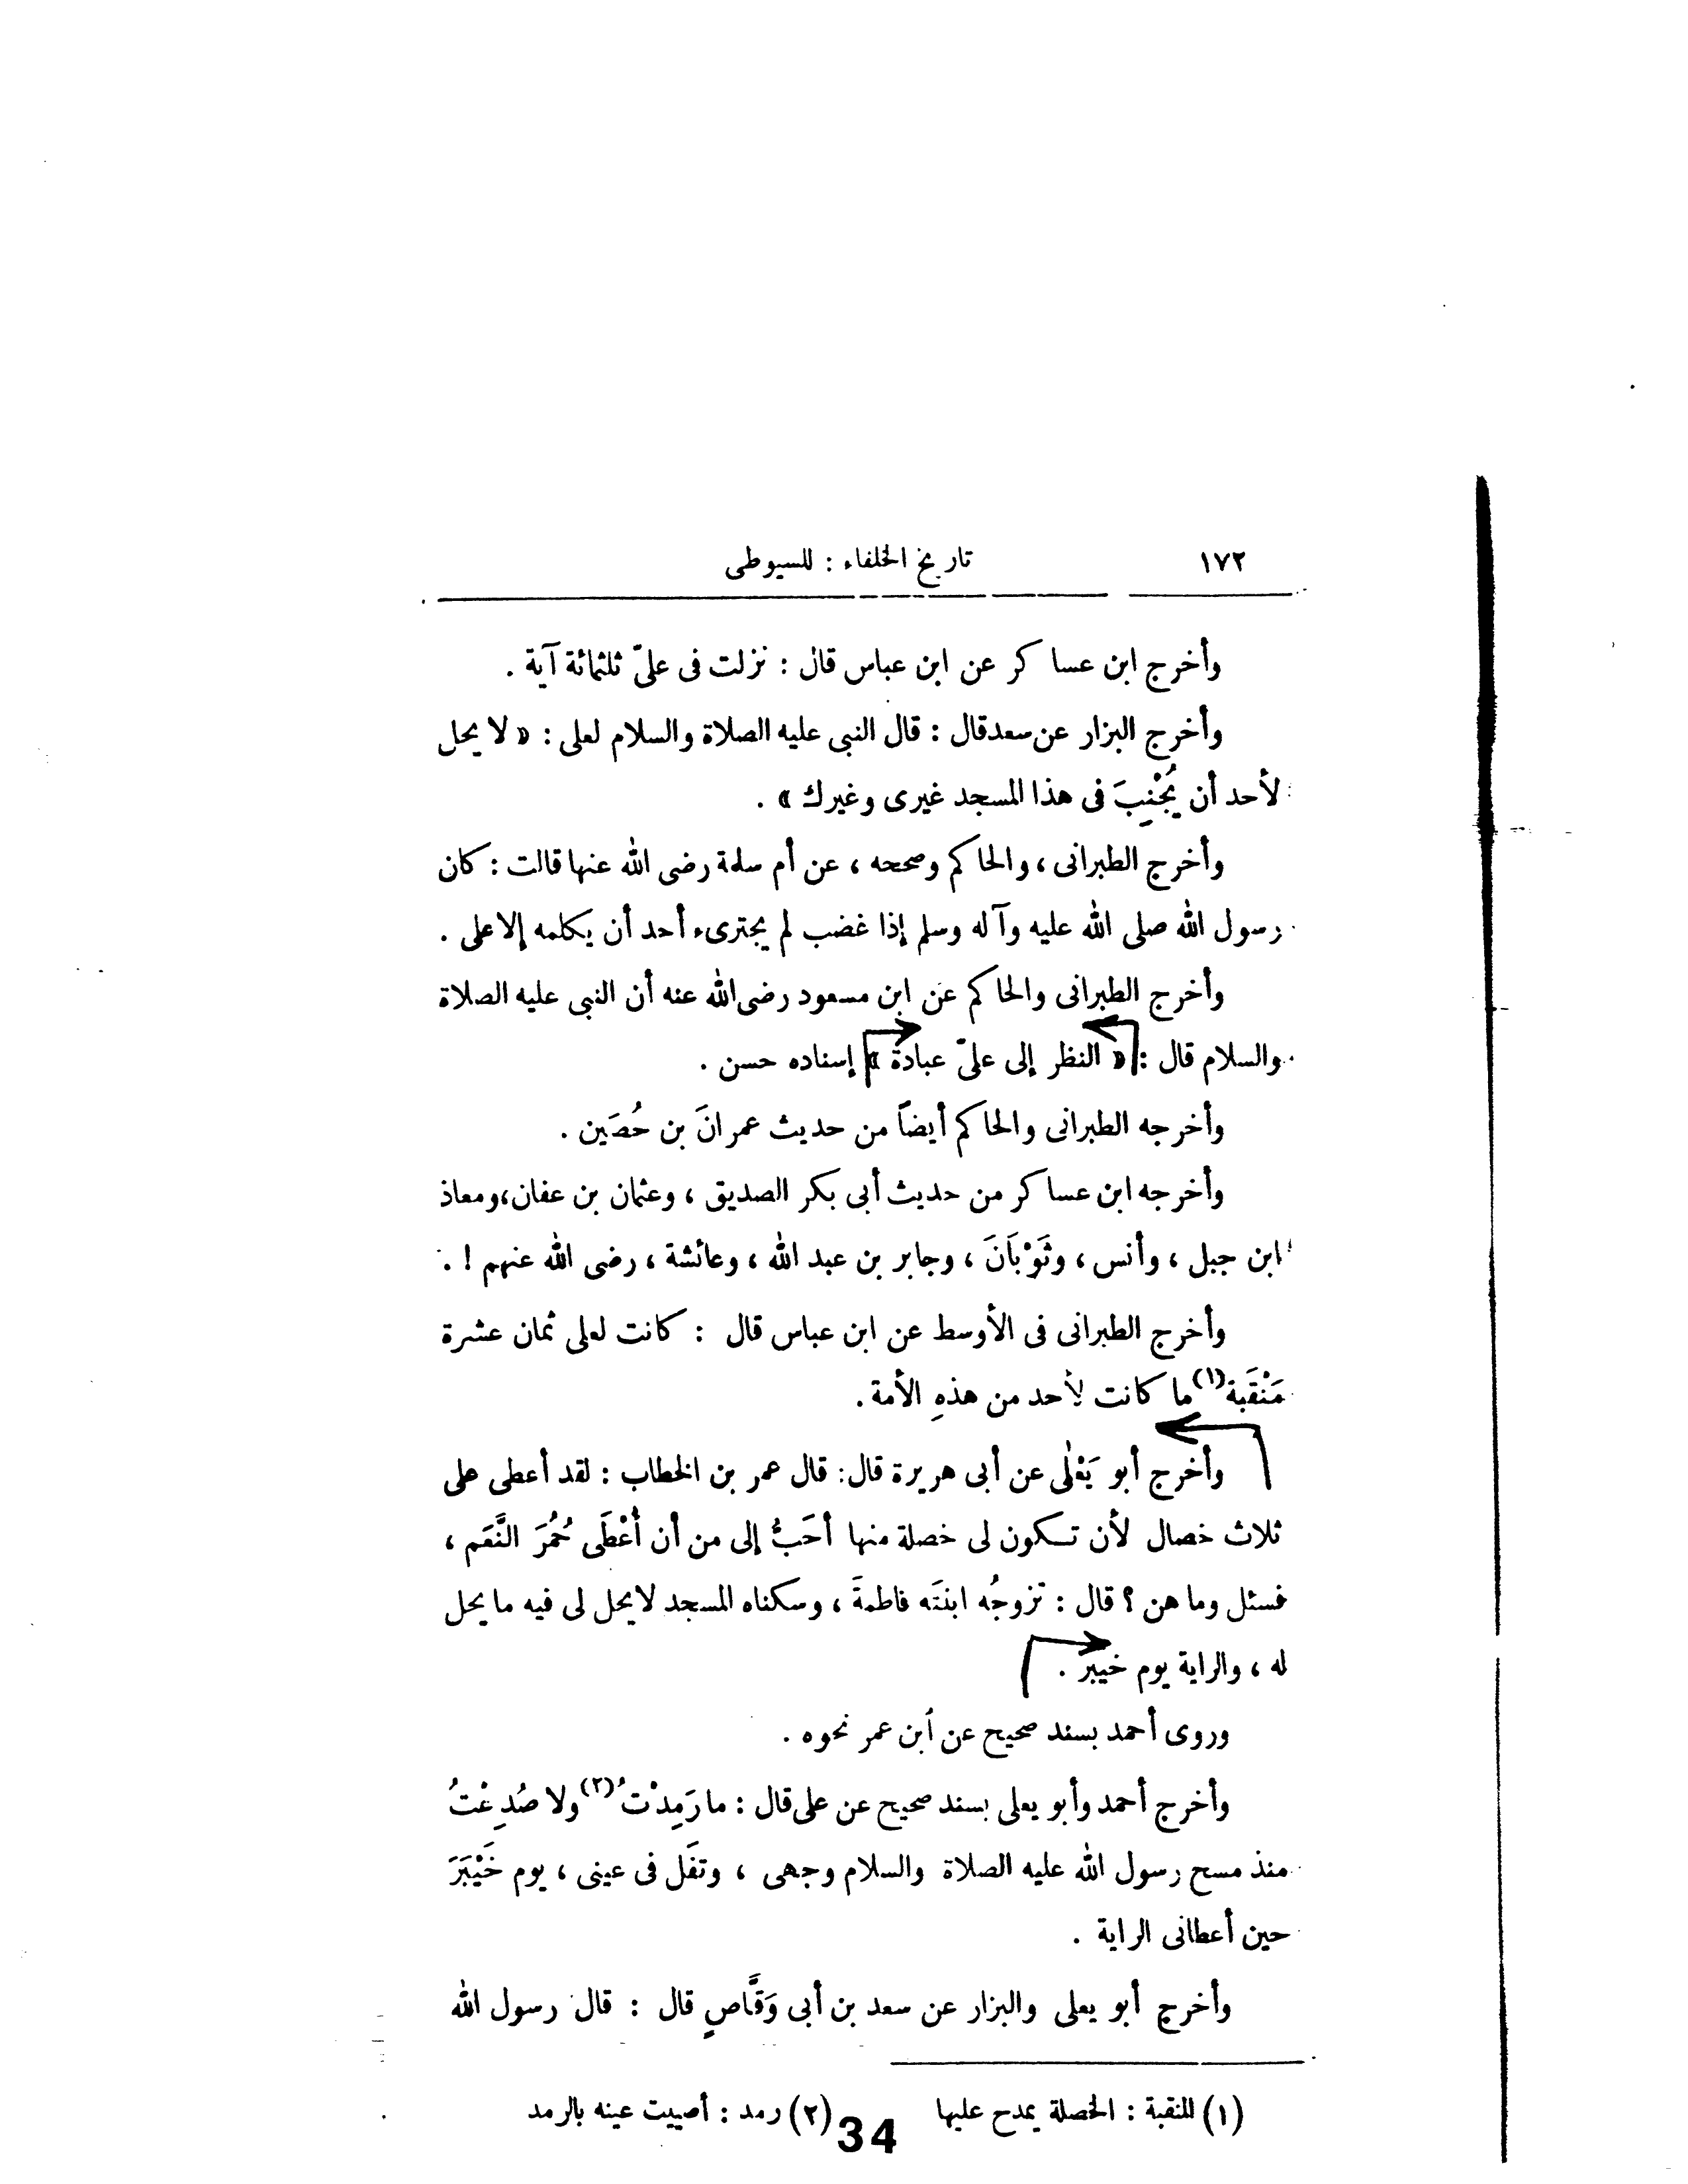 ١٧٢ تاريخ الخلفاء : للسيوطى
وأخرج ابن عساكر عن ابن عباس قال : نزلت فى علىّ ثلثمائة آية .
وأخرج البزار عن سعد قال : قال النبى عليه الصلاة والسلام لعلى : « لا يحل
لأحد أن يُجْنِبَ فى هذا المسجد غيرى وغيرك » .
وأخرج الطبرانى ، والحاكم وصححه ، عن أم سلمة رضى الله عنها قالت : كان
رسول الله صلى الله عليه وآله وسلم إذا غضب لم يجترىء أحد أن يكلمه إلا على .
وأخرج الطبرانى والحاكم عن ابن مسعود رضى الله عنه أن النبى عليه الصلاة
والسلام قال : « النظر إلى علىّ عبادة » إسناده حسن .
وأخرجه الطبرانى والحاكم أيضاً من حديث عمرانَ بن حُصَين .
وأخرجه ابن عساكر من حديث أبى بكر الصديق ، وعثمان بن عفان ، ومعاذ
ابن جبل ، وأنس ، وثَوْبَانَ ، وجابر بن عبد الله ، وعائشة ، رضى الله عنهم ! .
وأخرج الطبرانى فى الأوسط عن ابن عباس قال : كانت لعلى ثمان عشرة
مَنْقَبة(١) ما كانت لأحد من هذهِ الأمة .
وأخرج أبو يَعْلٰى عن أبى هريرة قال : قال عمر بن الخطاب : لقد أعطى على
ثلاث خصال لأن تكون لى خصلة منها أحَبُّ إلى من أن أُعْطَى حُمُرَ النَّعَم ،
فسئل وما هن ؟ قال : تزوجُه ابنتَه فاطمةَ ، وسكناه المسجد لا يحل لى فيه ما يحل
له ، والراية يوم خيبرَ .
وروى أحمد بسند صحيح عن ابن عمر نحوه .
وأخرج أحمد وأبو يعلى بسند صحيح عن على قال : ما رَمِدْتُ(٢) ولا صُدِعْتُ
منذ مسح رسول الله عليه الصلاة والسلام وجهى ، وتفَل فى عينى ، يوم خَيْبَرَ
حين أعطانى الراية .
وأخرج أبو يعلى والبزار عن سعد بن أبى وَقَّاصٍ قال : قال رسول الله
(١) المنقبة : الخصلة يمدح عليها (٢) رمد : أصيبت عينه بالرمد
34